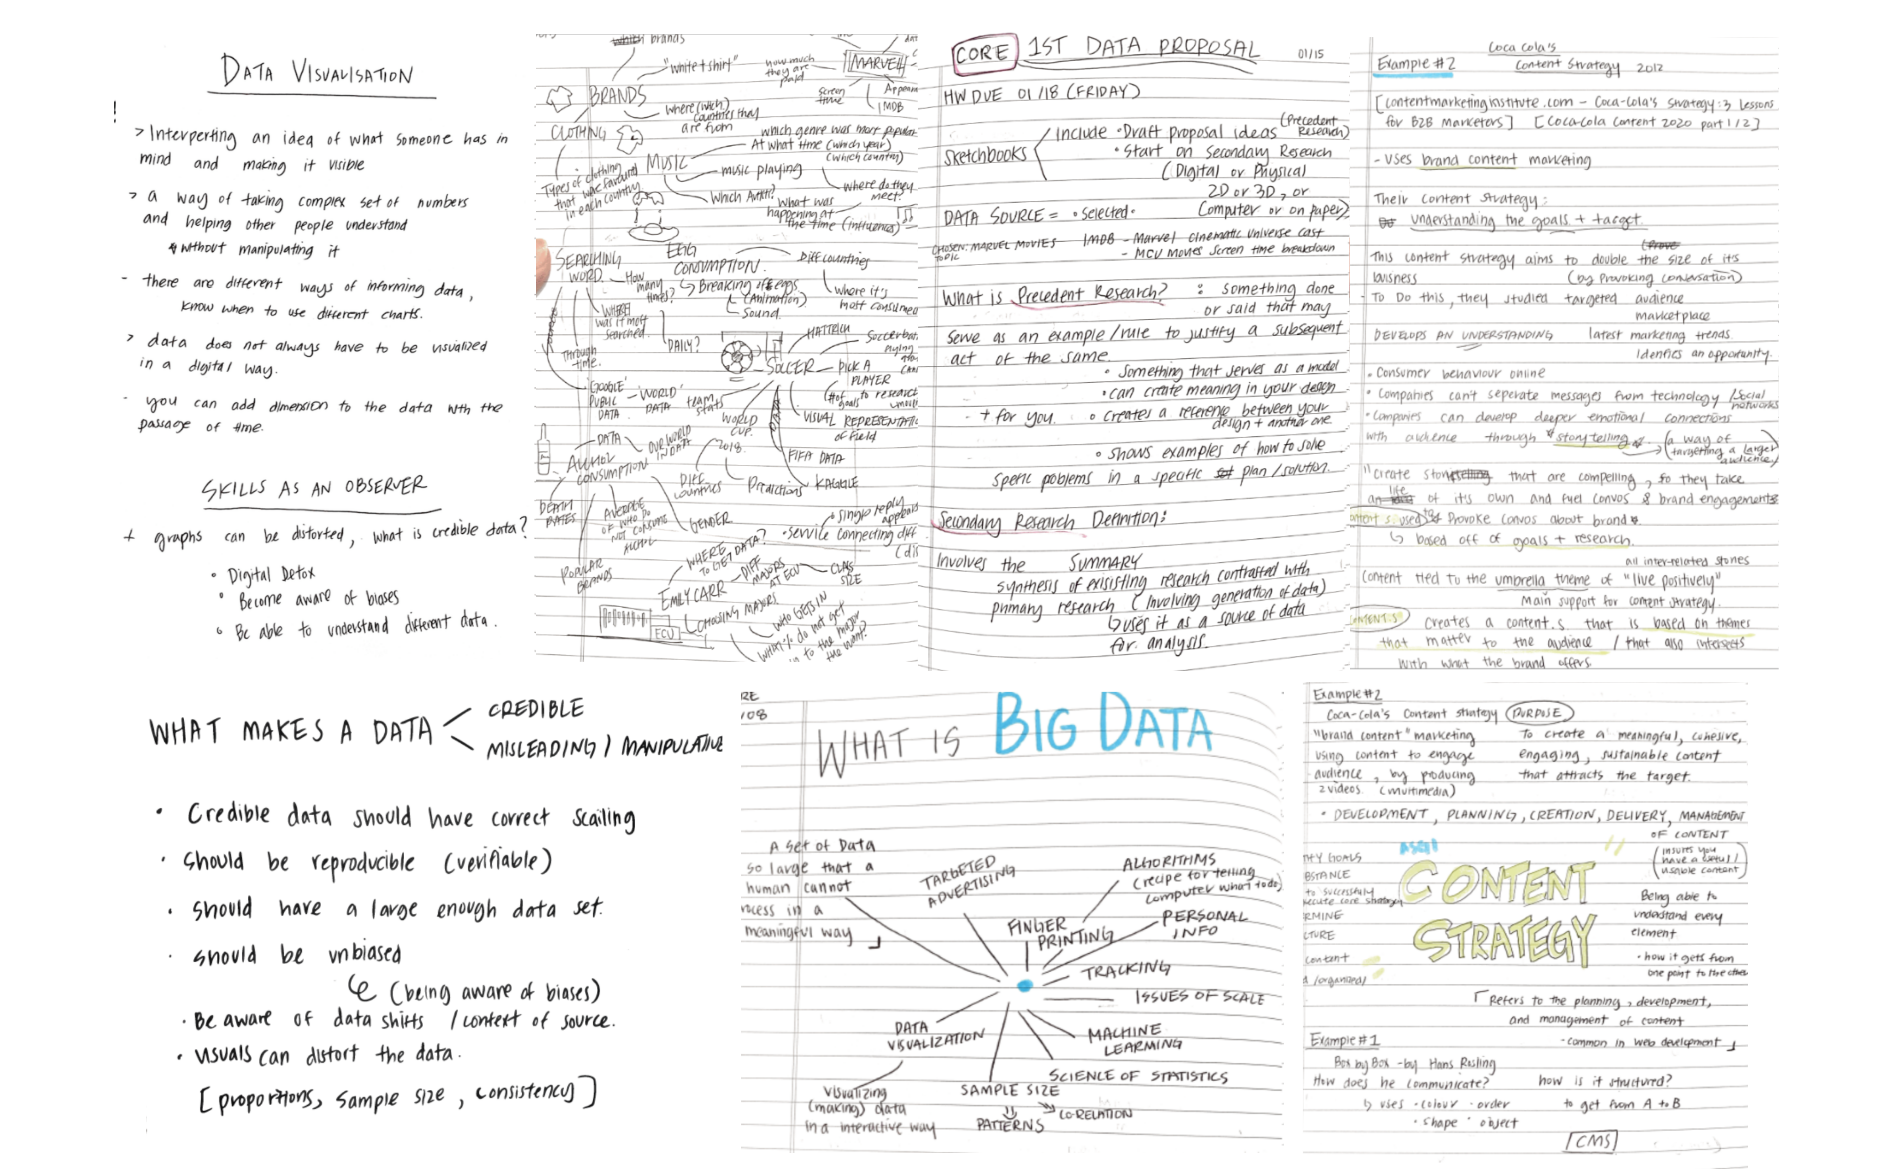 DATA VISUALISATION
!
> Interperting an idea of what someone has in
mind and making it visible
> a way of taking complex set of numbers
and helping other people understand
* without manipulating it
- there are different ways of informing data,
know when to use different charts.
> data does not always have to be visualized
in a digital way.
- you can add dimension to the data with the
passage of time.
SKILLS AS AN OBSERVER
+ graphs can be distorted, what is credible data?
• Digital Detox
• Become aware of biases
• Be able to understand different data.
brands
"white t shirt"
how much
they are
paid
MARVEL
screen
time
Appear
IMDB
BRANDS
where (which)
countries they
are from
CLOTHING
Types of clothing
that was favoured
in each country
MUSIC
which genre was more popular
At what time (which year)
(which country)
music playing
Which Artist?
where do they
meet?
What was
happening at
the time (influences)
EGG
CONSUMPTION
Diff countries
where it's
most consumed
Breaking of eggs
(Animation)
Sound
SEARCHING
WORD
How
many
times?
WHERE
was it most
searched
DAILY?
Through
time.
'GOOGLE'
PUBLIC
DATA
'WORLD'
DATA
SOCCER
HATTRICK
PICK A
PLAYER
(# of
goals
to research
team
stats
WORLD
CUP
2018
Predictions
KAGGLE
FIFA DATA
VISUAL REPRESENTATION
of field
DATA
OUR WORLD
IN DATA
ALCOHOL
CONSUMPTION
DIFF
COUNTRIES
GENDER
DEATH
RATES
AVERAGE
OF WHO DO
NOT CONSUME
ALCOHOL
POPULAR
BRANDS
• single reply
• service connecting diff
WHERE
TO GET DATA?
EMILY CARR
DIFF
MAJORS
AT ECU
CLASS
SIZE
CHOOSING MAJORS
ECU
WHO GETS IN
WHAT % do not get
in to the major
the want?
CORE 1ST DATA PROPOSAL 01/15
HW DUE 01/18 (FRIDAY)
Sketchbooks
include • Draft proposal ideas (Precedent
Research)
• Start on Secondary Research
(Digital or Physical
2D or 3D, or
Computer or on paper)
DATA SOURCE = • Selected •
CHOSEN: MARVEL MOVIES IMDB - Marvel cinematic universe cast
TOPIC - MCU movies screen time breakdown
What is Precedent Research? : something done
or said that may
serve as an example/rule to justify a subsequent
act of the same.
• something that serves as a model
• can create meaning in your design
- + for you. • Creates a reference between your
design + another one
• shows examples of how to solve
speific poblems in a specific plan/solution.
Secondary Research Definition:
Involves the SUMMARY
synthesis of exisisting research contrasted with
primary research (Involving generation of data)
uses it as a source of data
for analysis.
Example #2 Coca Cola's
Content Strategy 2012
[contentmarketinginstitute.com - Coca-Cola's Strategy: 3 lessons
for B2B Marketers] [Coca-Cola Content 2020 part 1/2]
- Uses brand content marketing
Their content strategy:
understanding the goals + target.
This content strategy aims to double the size of its
buisness (by Provoking conversation)
- To Do this, they studied targeted audience
marketplace
DEVELOPS AN UNDERSTANDING latest marketing trends.
Identfies an opportunity.
• Consumer behaviour online
• Companies can't seperate messages from technology /social
networks
• Companies can develop deeper emotional connections
with audience through *storytelling* (a way of
targetting a larger
audience)
"create stories that are compelling, so they take
life of its own and fuel convos & brand engagements
content is used to Provoke convos about brand
based off of goals + research.
all inter-related stories
Content tied to the umbrella theme of "live positively"
Main support for content strategy.
CONTENT.S creates a content.s that is based on themes
that matter to the audience / that also intersects
with what the brand offers
WHAT MAKES A DATA
CREDIBLE
MISLEADING / MANIPULATIVE
• Credible data should have correct scailing
• should be reproducible (verifiable)
• should have a large enough data set.
• should be unbiased
(being aware of biases)
• Be aware of data shifts / context of source.
• visuals can distort the data.
[proportions, sample size, consistency]
RE
108
WHAT IS BIG DATA
A set of Data
so large that a
human cannot
rocess in a
meaningful way
TARGETED
ADVERTISING
ALGORITHMS
(recipe for telling
computer what to do)
FINGER
PRINTING
PERSONAL
INFO
TRACKING
ISSUES OF SCALE
DATA
VISUALIZATION
MACHINE
LEARNING
SCIENCE OF STATISTICS
Visualizing
(making) data
in a interactive way
SAMPLE SIZE
PATTERNS
CO-RELATION
Example #2
Coca-Cola's Content strategy PURPOSE
"brand content" marketing To create a meaningful, cohesive,
using content to engage engaging, sustainable content
audience, by poducing that attracts the target.
2 videos. (multimedia)
• DEVELOPMENT, PLANNING, CREATION, DELIVERY, MANAGEMENT
OF CONTENT
(insures you
have a useful/
usable content)
CONTENT
STRATEGY
GOALS
to successfully
RMINE
CTURE
content
Being able to
understand every
element
• how it gets from
one point to the other
Refers to the planning, development,
and management of content
- common in web development
Example #1
Box by Box - by Hans Rosling
How does he communicate? how is it structured?
uses • colour • order to get from A to B
• shape • object
[CMS]